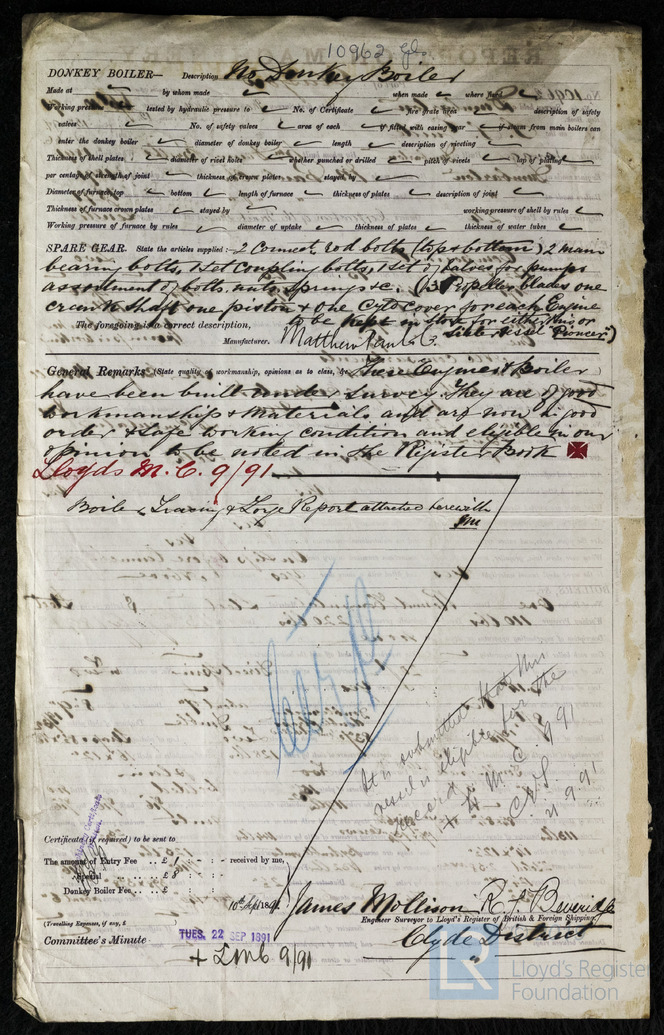 10962 Gls
DONKEY BOILER— Description No Donkey Boiler
Made at by whom made when made where fixed
Working pressure tested by hydraulic pressure to No. of Certificate fire grate area description of safety
valves No. of safety valves area of each if fitted with easing gear if steam from main boilers can
enter the donkey boiler diameter of donkey boiler length description of riveting
Thickness of shell plates diameter of rivet holes whether punched or drilled pitch of rivets lap of plating
per centage of strength of joint thickness of crown plates stayed by
Diameter of furnace, top bottom length of furnace thickness of plates description of joint
Thickness of furnace crown plates stayed by working pressure of shell by rules
Working pressure of furnace by rules diameter of uptake thickness of plates thickness of water tubes
SPARE GEAR. State the articles supplied:— 2 Connect. rod bolts (top & bottom) 2 main
bearing bolts, 1 set coupling bolts, 1 set of valves for pumps
assortment of bolts, nuts, springs &c. (3 Propeller blades one
crank shaft one piston & one Cyl cover for each Engine
to be kept in stock for either this or
The foregoing is a correct description, sister vessel "Pioneer")
Manufacturer. Matthew Paul & Co.
General Remarks (State quality of workmanship, opinions as to class, &c. These Engines & Boiler
have been built under survey. They are of good
workmanship & materials and are now in good
order & safe working condition and eligible in our
opinion to be noted in the Register Book
Lloyds M.C. 9/91
Boiler, Tracing & Forge Report attached herewith
It is submitted that this
vessel is eligible for the
record L.M.C. 9 91
21.9.91
Certificate (if required) to be sent to
The amount of Entry Fee .. £ 1 : - : - received by me,
Special .. £ 8 : - : -
Donkey Boiler Fee .. £ : :
10th Sept 1891
(Travelling Expenses, if any, £ )
James Mollison R. F. Beveridge
Engineer Surveyor to Lloyd's Register of British & Foreign Shipping.
Clyde District
Committee's Minute TUES. 22 SEP 1891
+ LMC 9/91
LR Lloyd's Register
Foundation